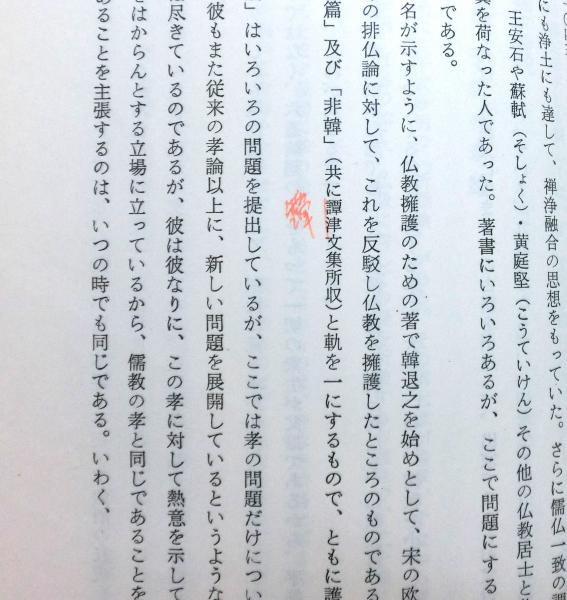 にも浄土にも達して、禅浄融合の思想をもっていた。さらに儒仏一致の
王安石や蘇軾（そしょく）・黄庭堅（こうていけん）その他の仏教居士と
を荷なった人であった。著書にいろいろあるが、ここで問題にする
である。
名が示すように、仏教擁護のための著で韓退之を始めとして、宋の欧
の排仏論に対して、これを反駁し仏教を擁護したところのものである
篇」及び「非韓」（共に譚津文集所収）と軌を一にするもので、ともに護
鐔
」はいろいろの問題を提出しているが、ここでは孝の問題だけについ
彼もまた従来の孝論以上に、新しい問題を展開しているというような
尽きているのであるが、彼は彼なりに、この孝に対して熱意を示して
をはからんとする立場に立っているから、儒教の孝と同じであることを
あることを主張するのは、いつの時でも同じである。いわく、